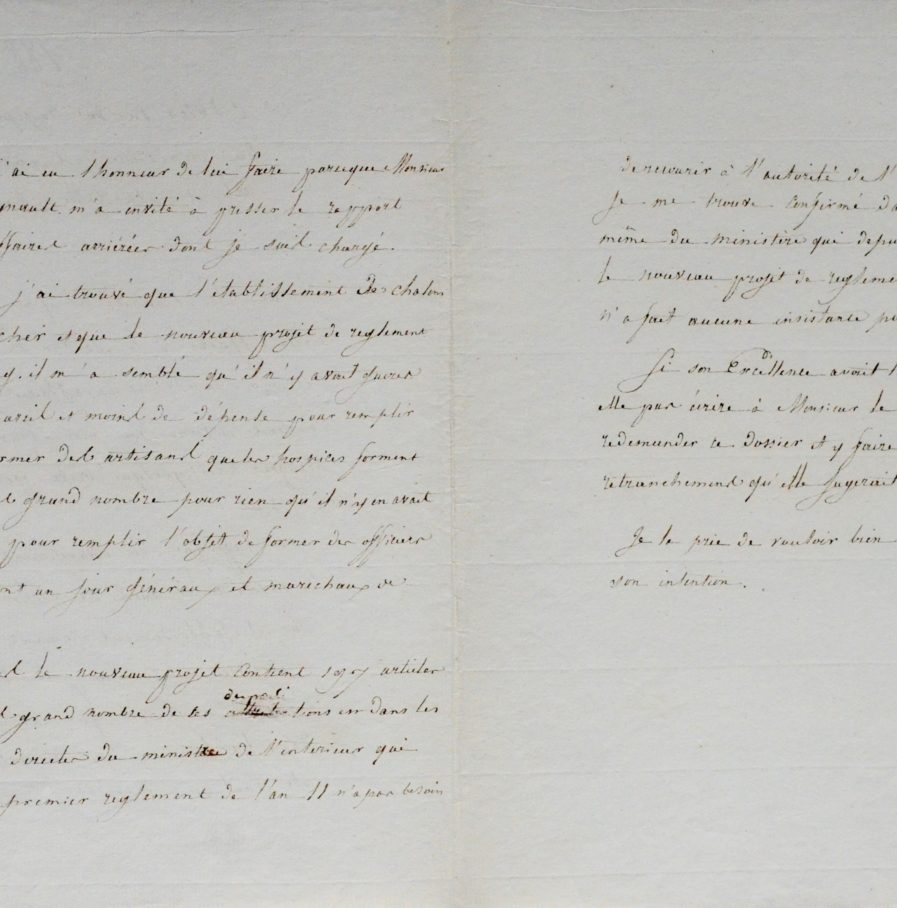 j'ai eu l'honneur de lui faire parceque Monsieur
m'a invité à presser le rapport
affaires arriérées dont je suis chargé.
j'ai trouvé que l'établissement De chalons
cher et que le nouveau projet de reglement
il m'a semblé qu'il n'y avait
et moins de dépense pour remplir
former des artisans que les hospices forment
grand nombre pour rien qu'il n'y en avait
pour remplir l'objet de former des officiers
un jour généraux et marechaux de
le nouveau projet contient articles
grand nombre de ses dans les
directes du ministre de l'interieur qui
premier reglement de l'an 11 n'a pas besoin
de recourir à l'autorité de l'
Je me trouve confirmé da
même du ministère qui depu
le nouveau projet de regleme
n'a fait aucune insistance
Si son Excellence avait
elle pas écrire à Monsieur le
redemander ce dossier et y faire
retranchemens qu'elle
Je le prie de vouloir bien
son intention.